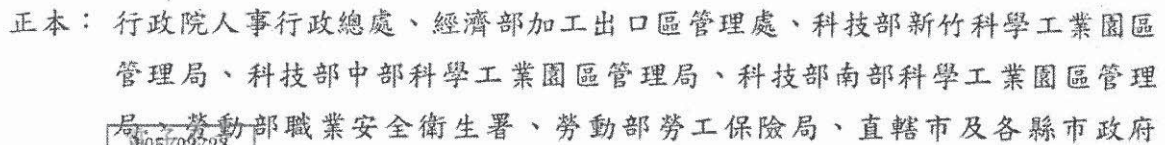 正本：行政院人事行政總處、經濟部加工出口區管理處、科技部新竹科學工業園區
管理局、科技部中部科學工業園區管理局、科技部南部科學工業園區管理
局、勞動部職業安全衛生署、勞動部勞工保險局、直轄市及各縣市政府